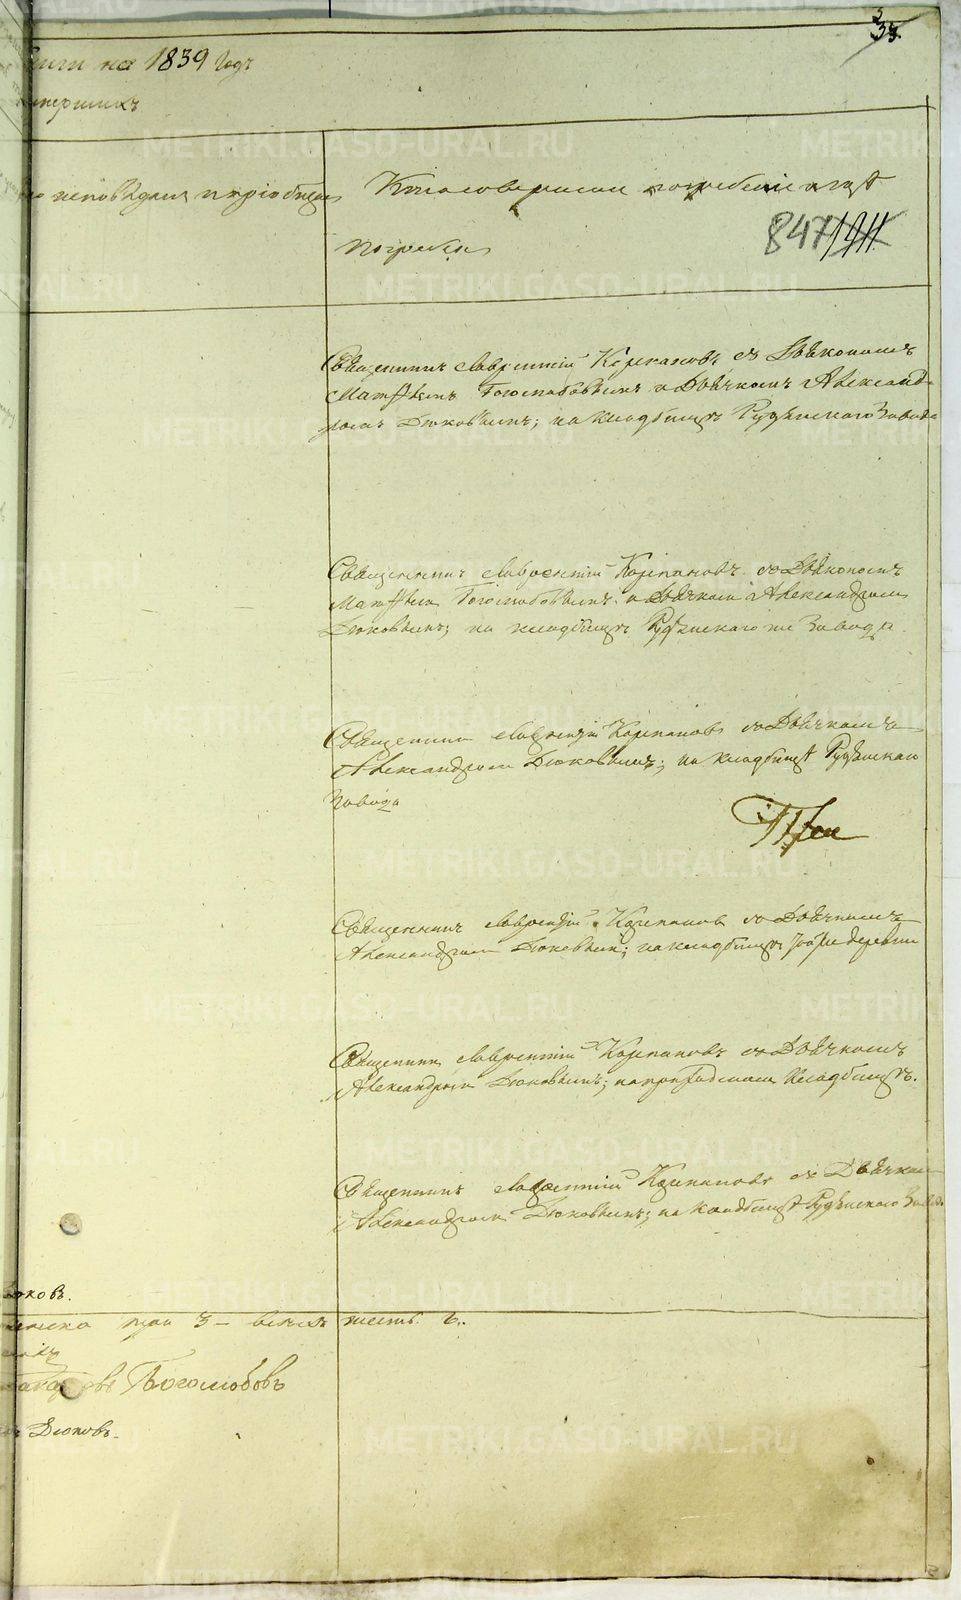 34.
на 1839 Годъ
умершихъ
исповѣдалъ и пріобщалъ
Кто совершалъ погребеніе и гдѣ
погребены
847
Священникъ Лаврентій Карпановъ съ Дьякономъ
Матфѣемъ Боголюбовымъ и Дьячкомъ Александ-
ромъ Дюковымъ; на кладбищѣ Рудянскаго Завода
Священникъ Лаврентій Карпановъ съ Дьякономъ
Матфѣемъ Боголюбовымъ и Дьячкомъ Александромъ
Дюковымъ; на кладбищѣ Рудянскаго же Завода
Священникъ Лаврентій Карпановъ съ Дьячкомъ
Александромъ Дюковымъ; на кладбищѣ Рудянскаго
Завода
Священникъ Лаврентій Карпановъ съ Дьячкомъ
Александромъ Дюковымъ; на кладбищѣ деревни
Священникъ Лаврентій Карпановъ съ Дьячкомъ
Александромъ Дюковымъ; на приходскомъ кладбищѣ.
Священникъ Лаврентій Карпановъ съ Дьячкомъ
Александромъ Дюковымъ; на кладбищѣ Рудянскаго Завода
Дюковъ.
женска три 3 – всѣхъ шесть 6.
Боголюбовъ
Дюковъ.
METRIKI.GASO-URAL.RU